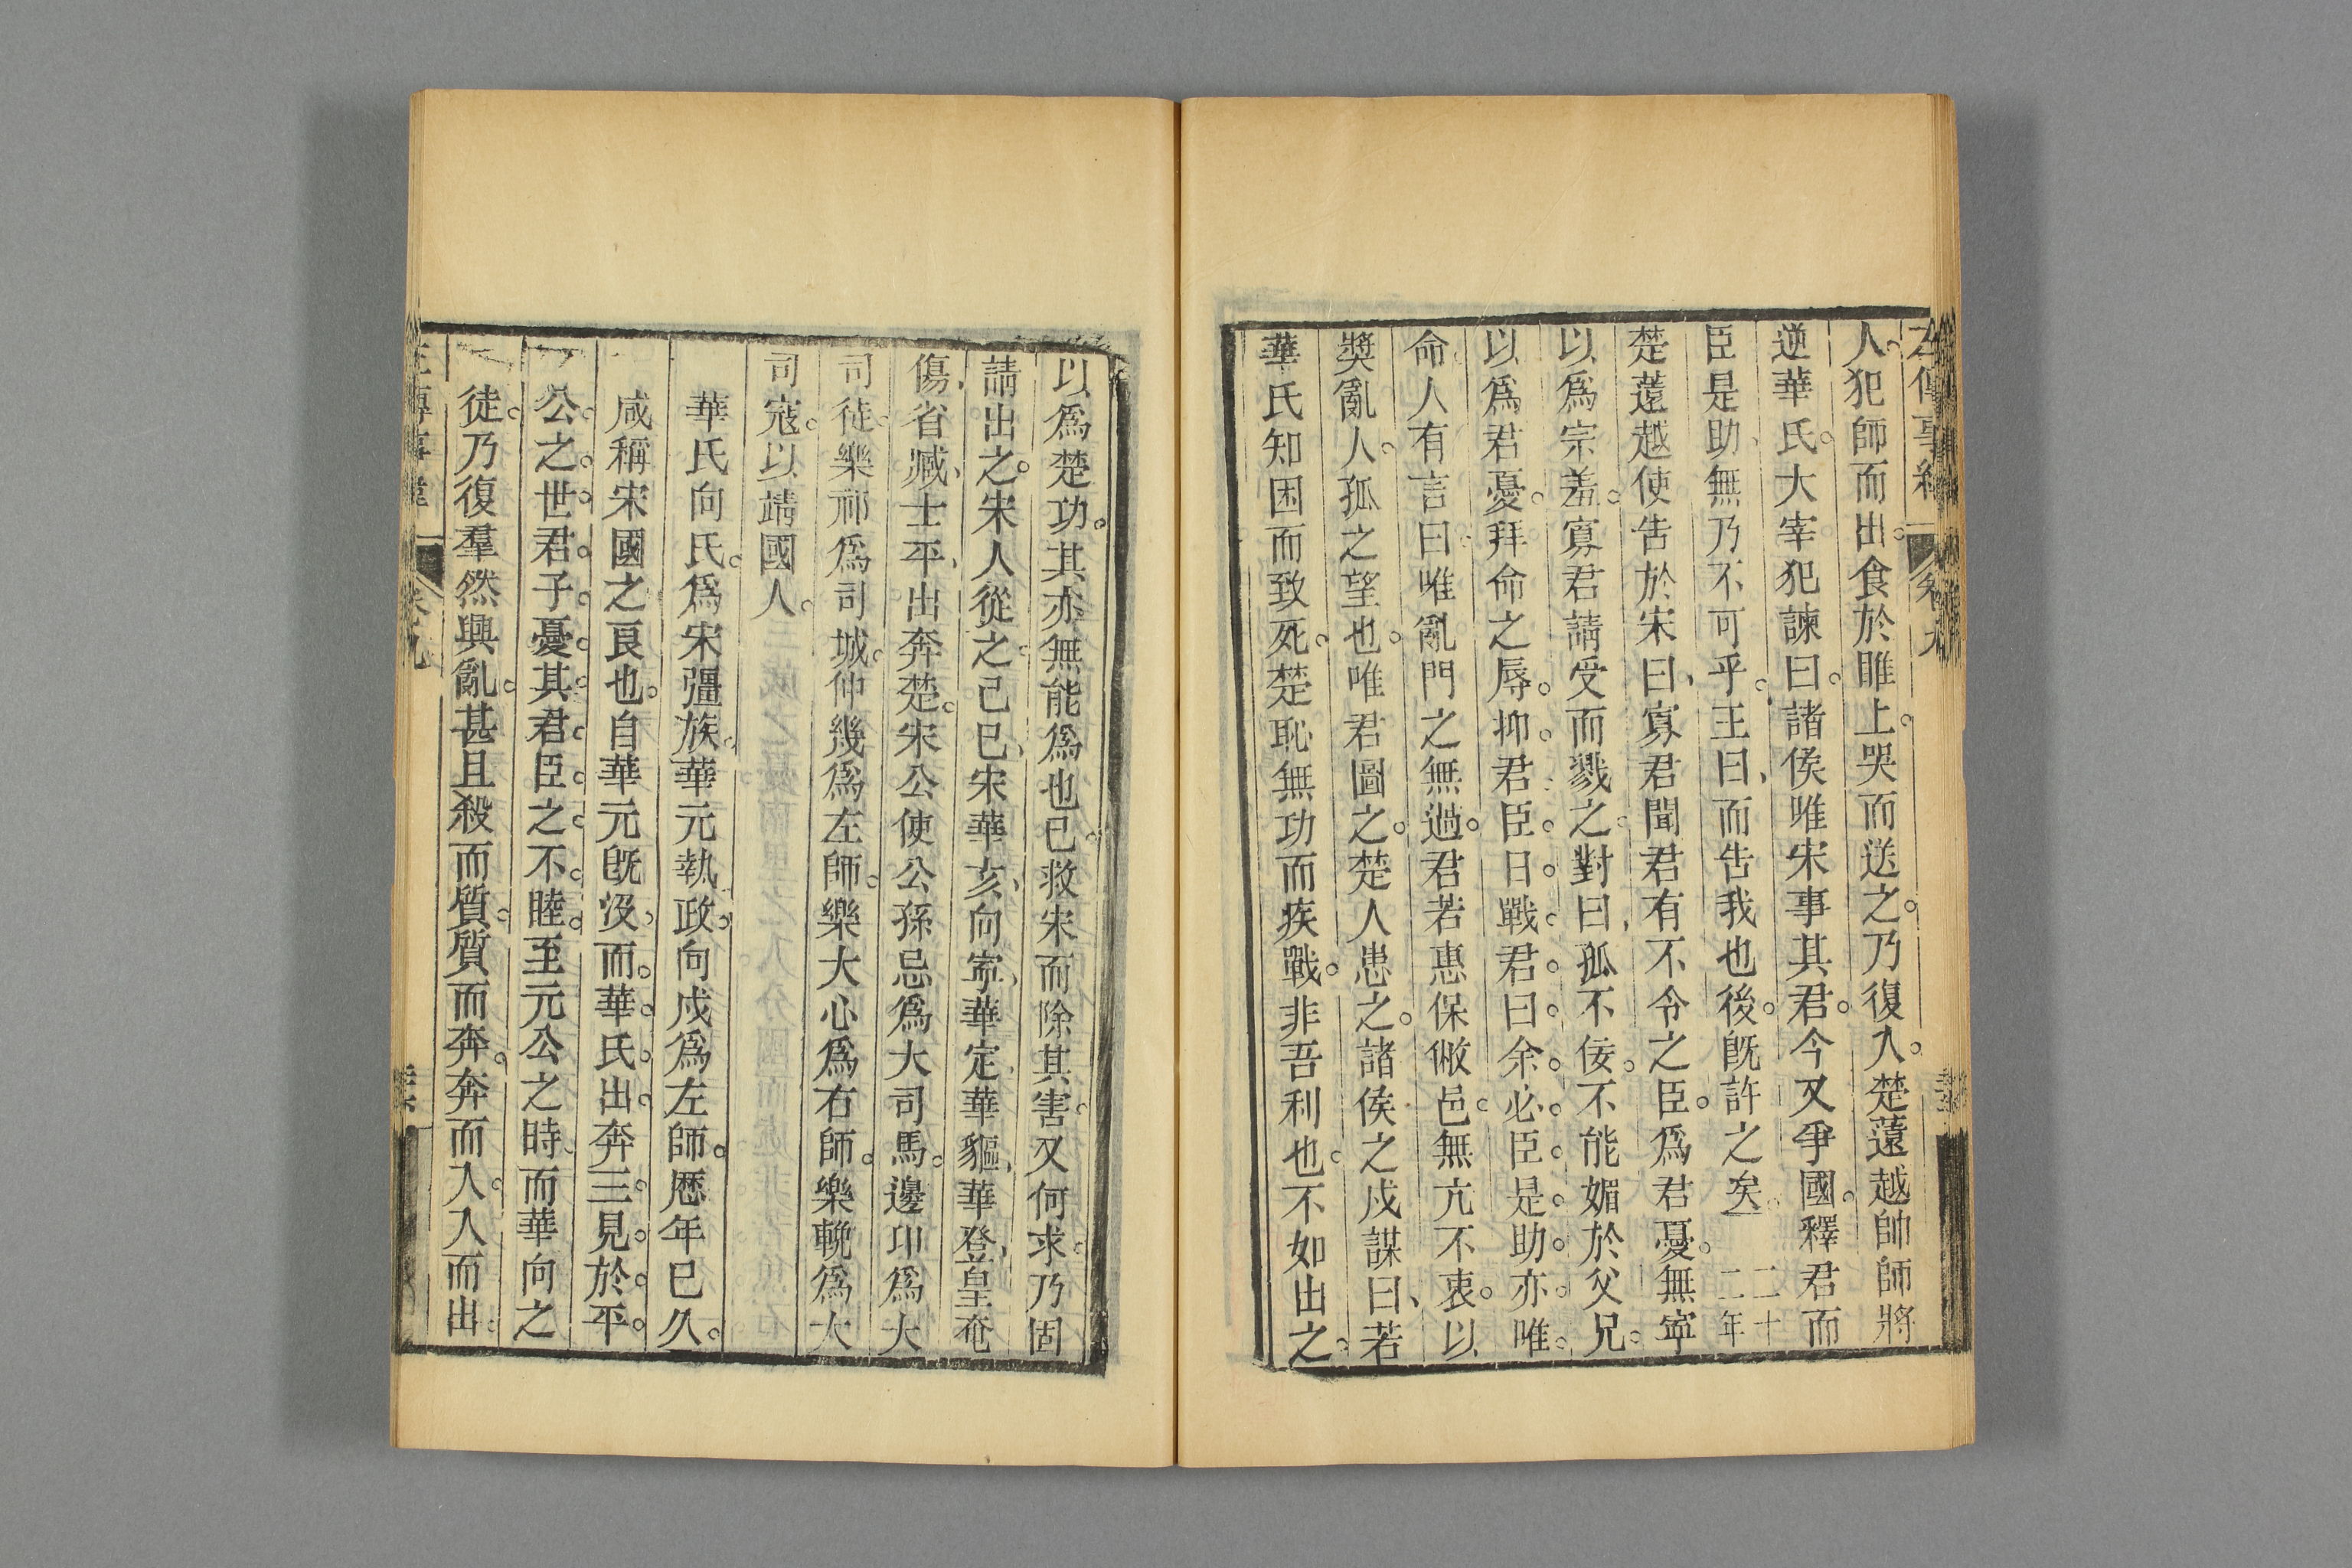 人犯師而出食於睢上哭而送之乃復入楚薳越帥師將
逆華氏大宰犯諫曰諸侯唯宋事其君今又爭國釋君而
臣是助無乃不可乎王曰而告我也後旣許之矣二十二年
楚薳越使告於宋曰寡君聞君有不令之臣爲君憂無寧
以爲宗羞寡君請受而戮之對曰孤不佞不能媚於父兄
以爲君憂拜命之辱抑君臣日戰君曰余必臣是助亦唯
命人有言曰唯亂門之無過君若惠保敝邑無亢不衷以
奬亂人孤之望也唯君圖之楚人患之諸侯之戍謀曰若
華氏知困而致死楚恥無功而疾戰非吾利也不如出之
以爲楚功其亦無能爲也已救宋而除其害又何求乃固
請出之宋人從之己巳宋華亥向寧華定華貙華登皇奄
傷省臧士平出奔楚宋公使公孫忌爲大司馬邊卬爲大
司徒樂祁爲司城仲幾爲左師樂大心爲右師樂輓爲大
司寇以靖國人
華氏向氏爲宋彊族華元執政向戌爲左師歷年已久
咸稱宋國之良也自華元旣沒而華氏出奔三見於平
公之世君子憂其君臣之不睦至元公之時而華向之
徒乃復羣然興亂甚且殺而質質而奔奔而入入而出